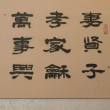 妻賢子
孝家龢
萬事興